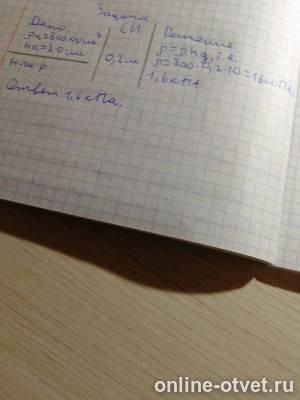 Задача
Дано
СИ
Решение
ρк=800кг/м³
hк=20см
0,2м
ρ=ρhg, т.е.
ρ=800·0,2·10=1600Па
1,6кПа
Н-ти P
Ответ: 1,6кПа.
online-otvet.ru